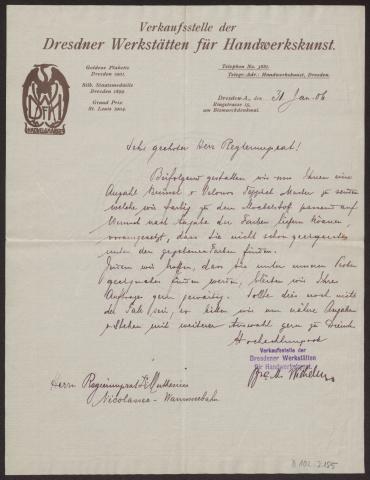 Verkaufsstelle der
Dresdner Werkstätten für Handwerkskunst.
Goldene Plakette
Dresden 1901.
Silb. Staatsmedaille
Dresden 1899
Grand Prix
St. Louis 1904.
Telephon No.
Telegr.-Adr.: Handwerkskunst, Dresden.
Dresden-A., den 31 Jan. 06
Ringstrasse 15,
am Bismarckdenkmal.
Sehr geehrter Herr Regierungsrat!
Beifolgend gestatten wir uns Ihnen eine
Anzahl Brüssel u Velour Teppich Muster zu senden
welche wir farbig zu dem Möbelstoff passend auf
Wunsch nach Angabe der Farben liefern können
vorausgesetzt, dass Sie nicht schon geeignete
unter den gegebenen Farben finden.
Indem wir hoffen, dass Sie unter unseren Proben
geeignetes finden werden, bleiben wir Ihrer
Aufträge gern gewärtig. Sollte dies noch nicht
der Fall sein, so bitten wir um nähere Angaben
u stehen mit weiterer Auswahl gern zu Dienst
Hochachtungsvoll
Verkaufsstelle der
Dresdner Werkstätten
für Handwerkskunst.
Herrn Regierungsrat Dr Muthesius
Nicolassee - Wannseebahn
D 102-2155